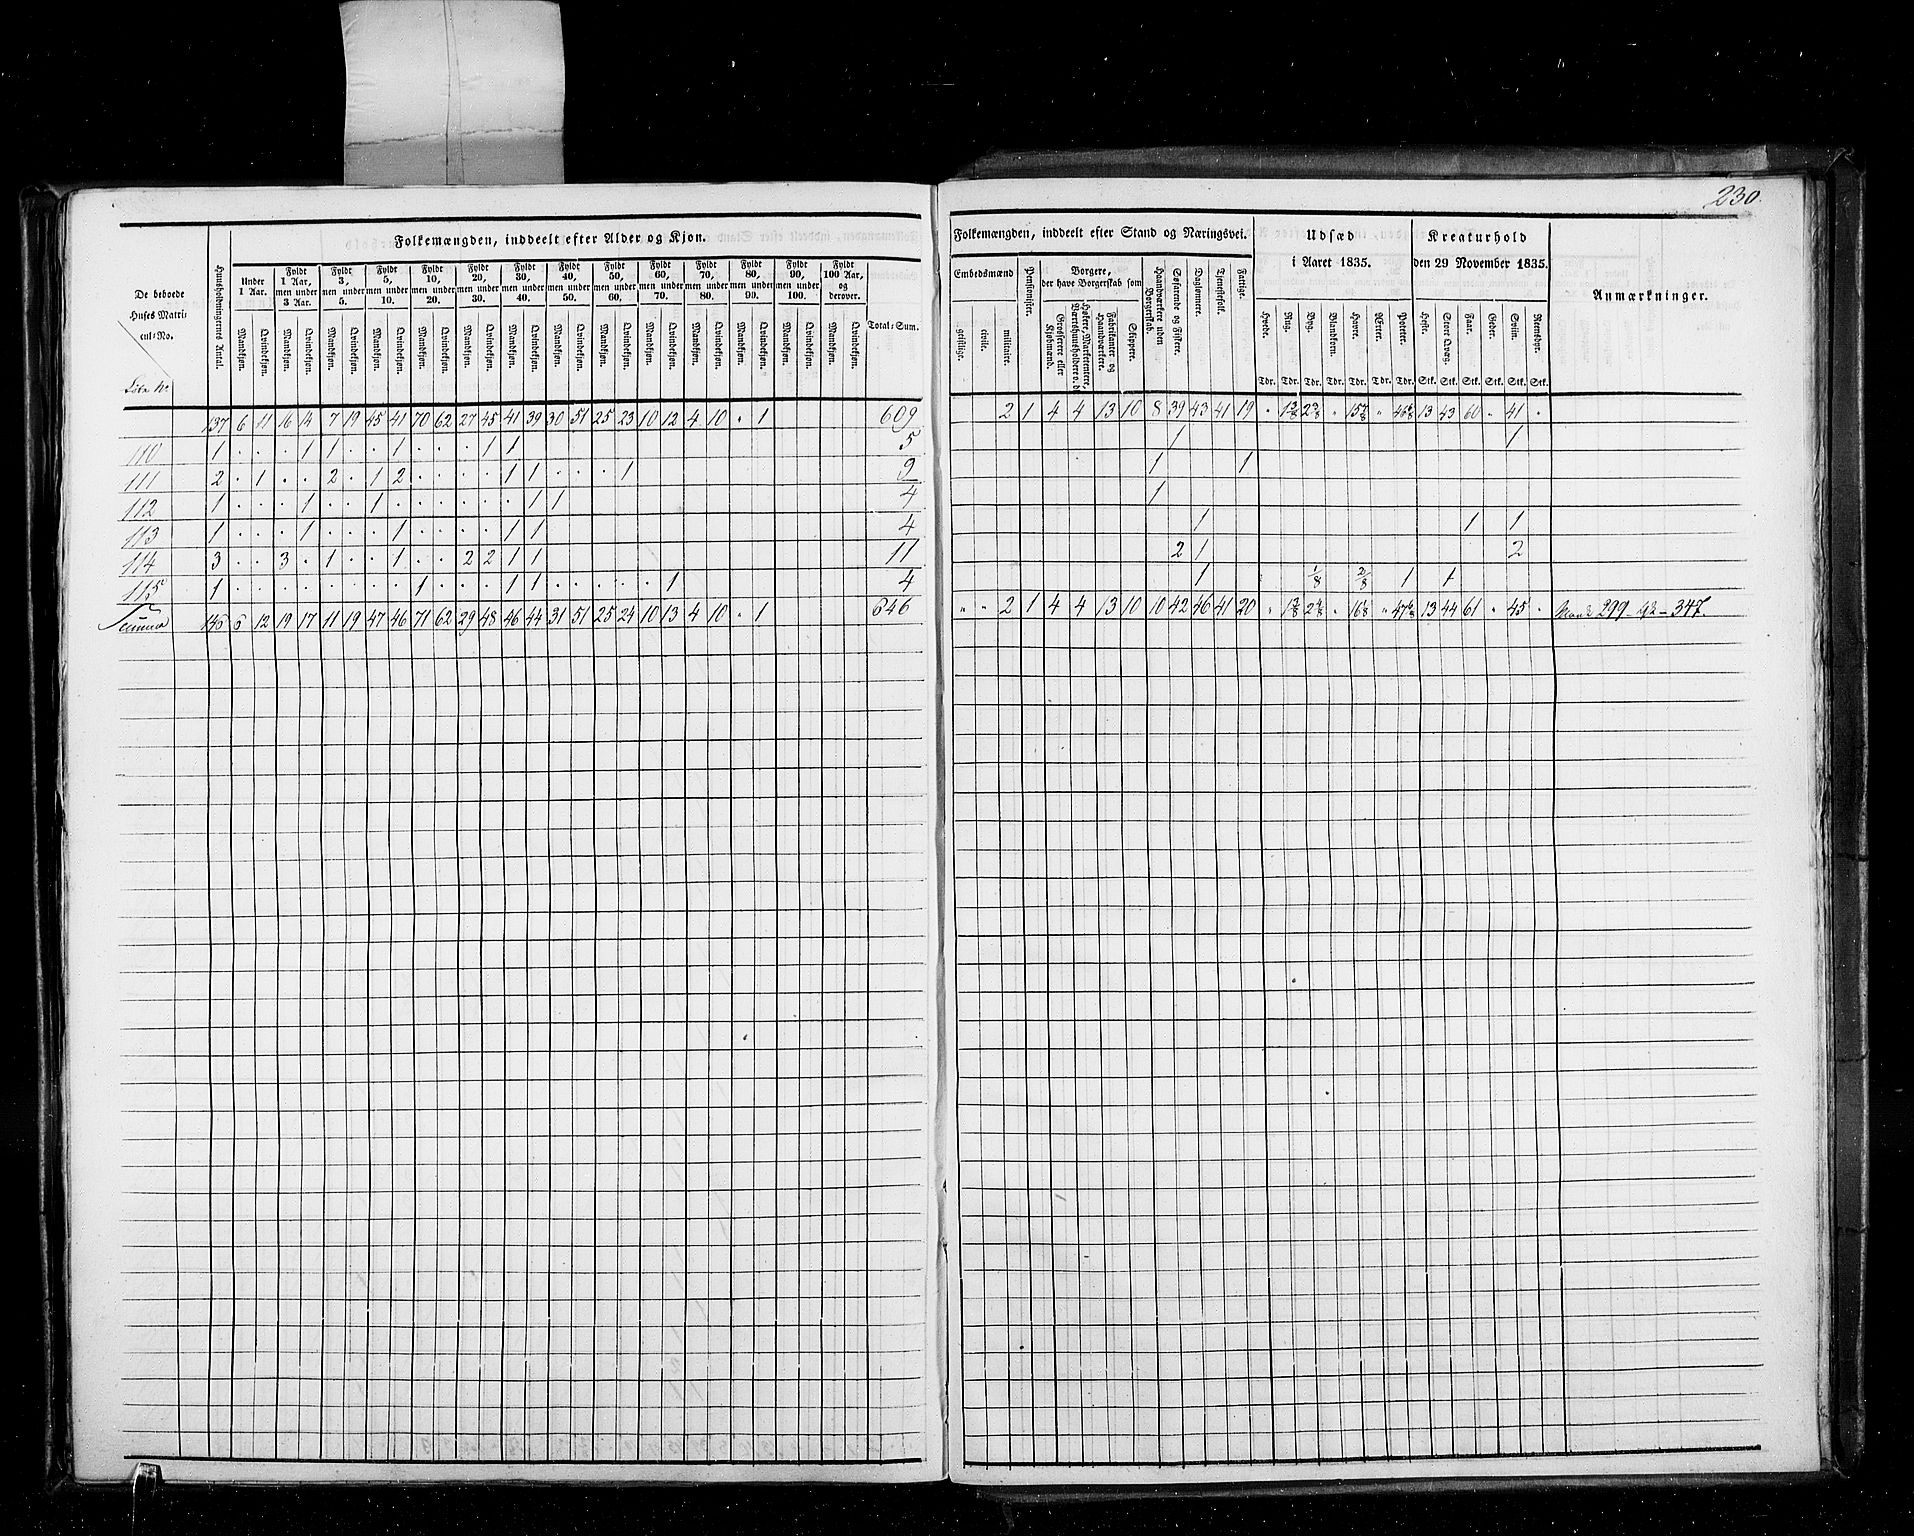 230.
Folkemængden, inddeelt efter Alder og Kjøn.
De beboede Huses Matricul-No.
Løbe No
Huusholdningernes Antal.
Under 1 Aar.
Fyldt 1 Aar, men under 3 Aar.
Fyldt 3, men under 5.
Fyldt 5, men under 10.
Fyldt 10, men under 20.
Fyldt 20, men under 30.
Fyldt 30, men under 40.
Fyldt 40, men under 50.
Fyldt 50, men under 60.
Fyldt 60, men under 70.
Fyldt 70, men under 80.
Fyldt 80, men under 90.
Fyldt 90, men under 100.
Fyldt 100 Aar, og derover.
Total-Sum.
Mandkjøn. Qvindekjøn. Mandkjøn. Qvindekjøn. Mandkjøn. Qvindekjøn. Mandkjøn. Qvindekjøn. Mandkjøn. Qvindekjøn. Mandkjøn. Qvindekjøn. Mandkjøn. Qvindekjøn. Mandkjøn. Qvindekjøn. Mandkjøn. Qvindekjøn. Mandkjøn. Qvindekjøn. Mandkjøn. Qvindekjøn. Mandkjøn. Qvindekjøn. Mandkjøn. Qvindekjøn. Mandkjøn. Qvindekjøn.
137 6 11 16 14 7 19 45 41 70 62 27 45 41 39 30 51 25 23 10 12 4 10 . 1 609
110 1 . . . 1 1 . . 1 . . . 1 1 5
111 2 . 1 . . 2 . 1 2 . . . . 1 1 . . . 1 9
112 1 . . . 1 . . 1 . . . . . . 1 1 4
113 1 . . . 1 . . . 1 . . . . 1 1 4
114 3 . . 3 . 1 . . 1 . . 2 2 1 1 11
115 1 . . . . . . . . 1 . . . 1 1 . . . . . 1 4
Summa 146 6 12 19 17 11 19 47 46 71 62 29 48 46 44 31 51 25 24 10 13 4 10 . 1 646
Folkemængden, inddeelt efter Stand og Næringsvei.
Udsæd i Aaret 1835.
Kreaturhold den 29 November 1835.
Anmærkninger.
Embedsmænd
geistlige. civile. militaire.
Pensionister.
Borgere, der have Borgerskab som
Grosserere eller Kjøbmænd.
Høkere, Marketentere, Værtshuusholdere o. d.
Fabrikanter og Haandværkere.
Skippere.
Haandværkere uden Borgerskab.
Søfarende og Fiskere.
Daglønnere.
Tjenestefolk.
Fattige.
Hvede. Rug. Byg. Blandkorn. Havre. Ærter. Poteter.
Heste. Stort Qvæg. Faar. Geder. Sviin. Reensdyr.
Tdr. Tdr. Tdr. Tdr. Tdr. Tdr. Tdr. Stk. Stk. Stk. Stk. Stk. Stk.
2 1 4 4 13 10 8 39 43 41 19 " 1 3/8 2 3/8 " 15 7/8 " 46 6/8 13 43 60 " 41 "
1 1
1 1
1
1 1 1
2 1 2
1 1/8 2/8 1 1
" " 2 1 4 4 13 10 10 42 46 41 20 " 1 3/8 2 4/8 " 16 1/8 " 47 6/8 13 44 61 " 45 " 299 347.